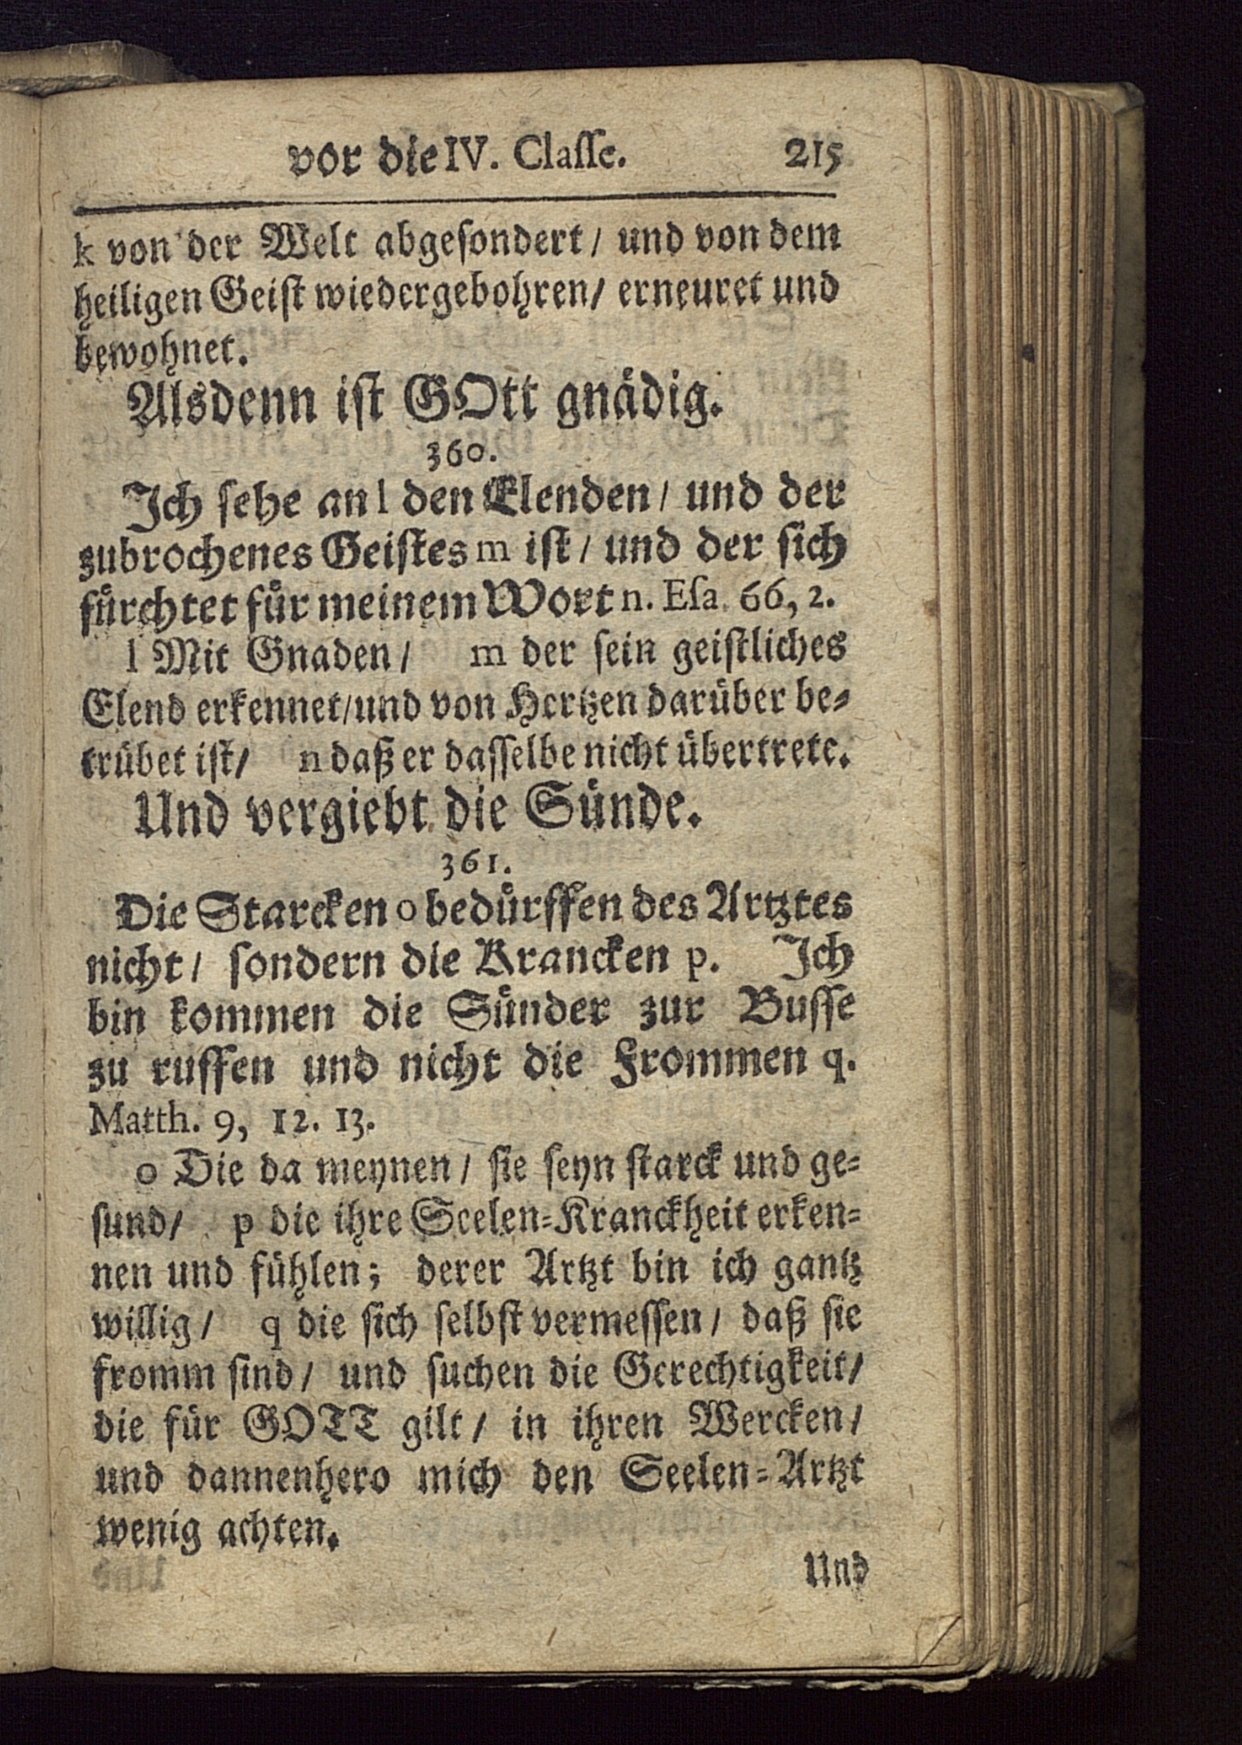 vor die IV. Classe. 215
k von der Welt abgesondert / und von dem
heiligen Geist wiedergebohren / erneuret und
bewohnet.
Alsdenn ist GOtt gnädig.
360.
Ich sehe an l den Elenden / und der
zubrochenes Geistes m ist / und der sich
fürchtet für meinem Wort n. Esa. 66, 2.
l Mit Gnaden / m der sein geistliches
Elend erkennet / und von Hertzen darüber be-
trübet ist / n daß er dasselbe nicht übertrete.
Und vergiebt die Sünde.
361.
Die Starcken o bedürffen des Artztes
nicht / sondern die Krancken p. Ich
bin kommen die Sünder zur Busse
zu ruffen und nicht die Frommen q.
Matth. 9, 12. 13.
o Die da meynen / sie seyn starck und ge-
sund / p die ihre Seelen-Kranckheit erken-
nen und fühlen; derer Artzt bin ich gantz
willig / q die sich selbst vermessen / daß sie
fromm sind / und suchen die Gerechtigkeit /
die für GOTT gilt / in ihren Wercken /
und dannenhero mich den Seelen-Artzt
wenig achten.
Und